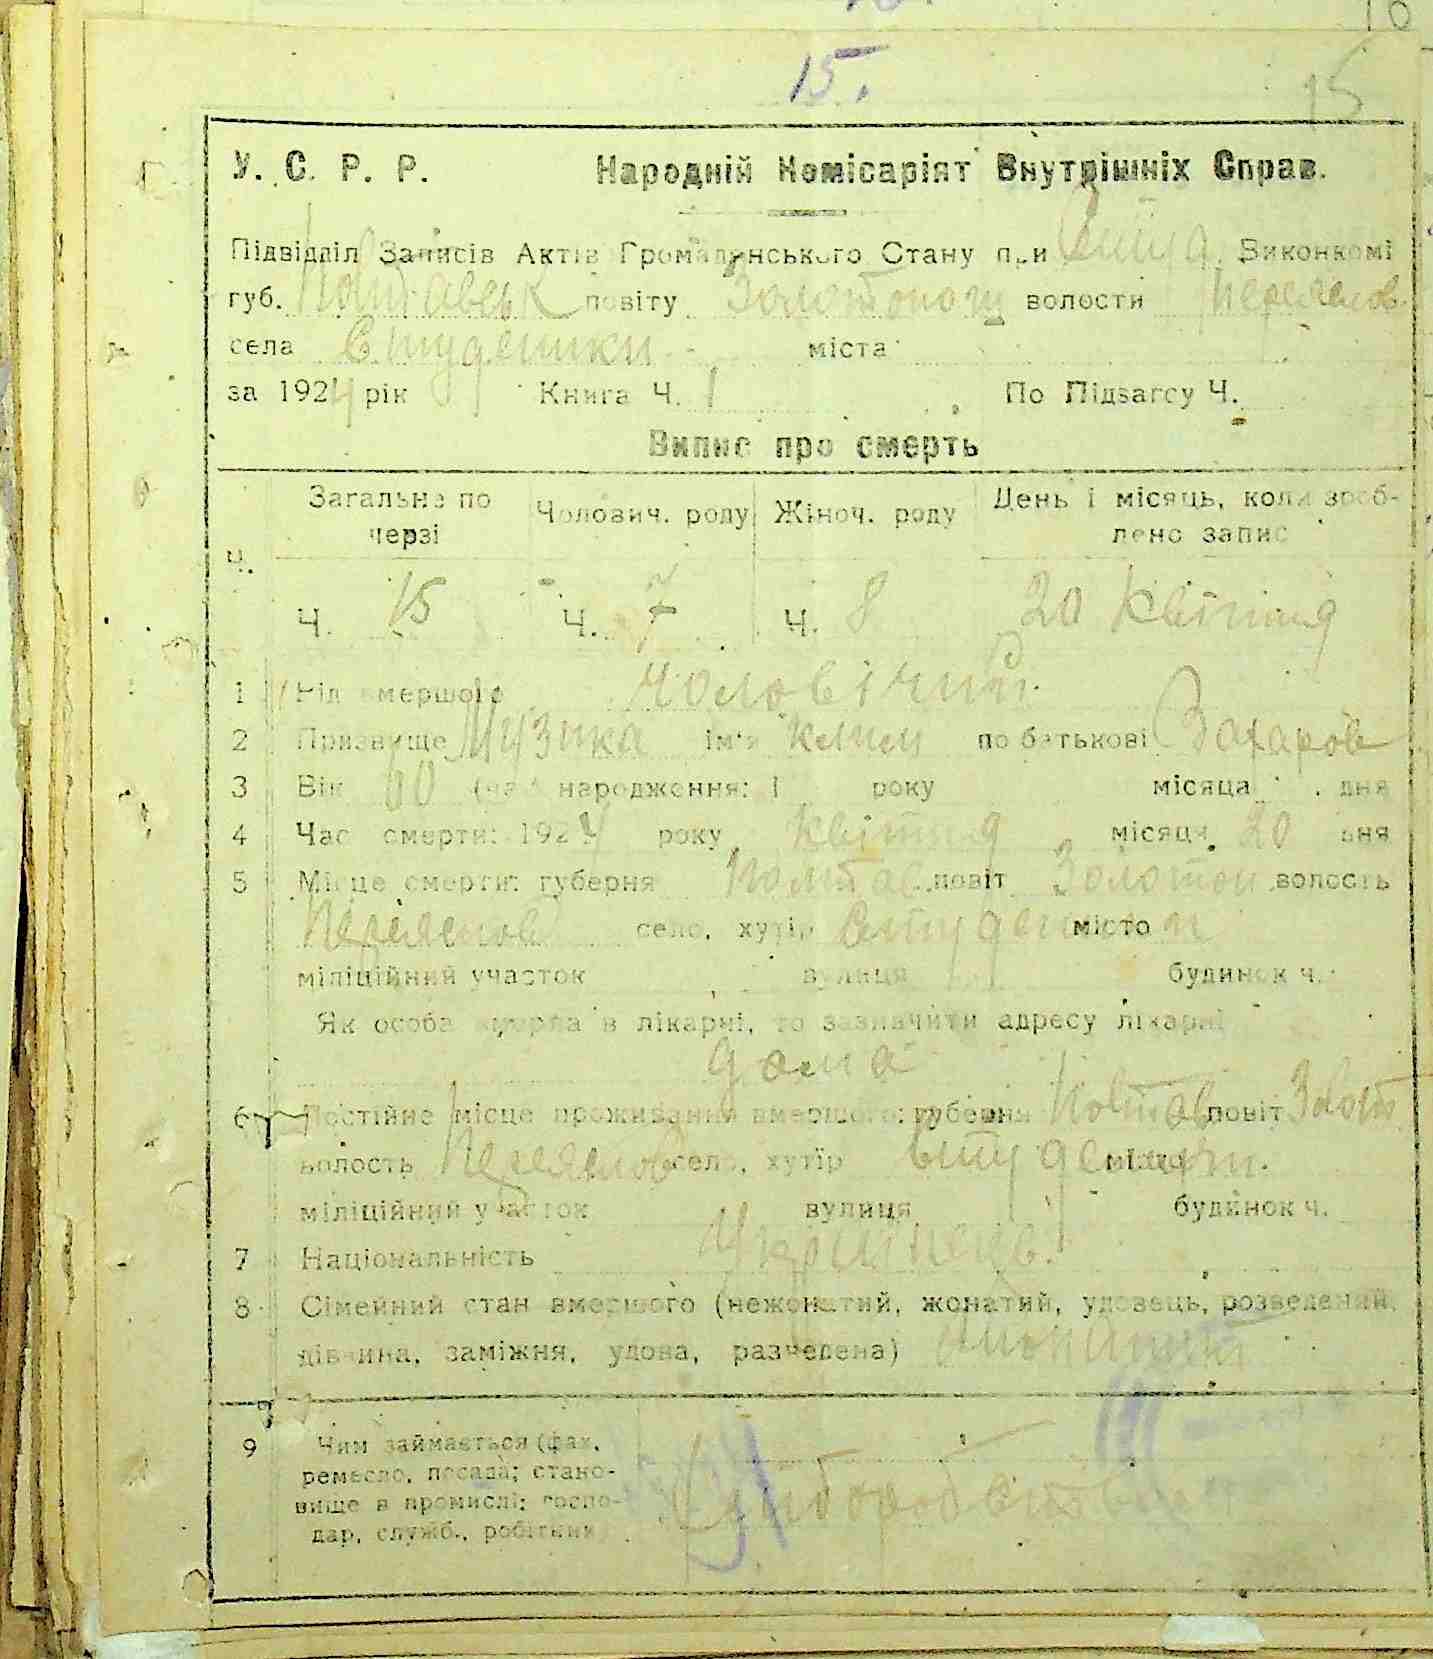 15.
15
У. С. Р. Р. Народній Комісаріят Внутрішніх Справ.
Підвідділ Записів Актів Громадянського Стану при Студ. Виконкомі
губ. Полтавськ повіту Золотонош волости Переяслов
села Студеники міста
за 1924 рік Книга Ч. 1 По Підзагсу Ч.
Випис про смерть
Загальне по черзі Чолович. роду Жіноч. роду День і місяць, коли зроблено запис
Ч. Ч. 15 Ч. 7 Ч. 8 20 Квітня
1 Рід вмершого чоловічий.
2 Призвище Музика ім'я Клим по батькові Захаров
3 Вік 60 (час народження: 1 року місяца дня
4 Час смерти: 1924 року Квітня місяця 20 дня
5 Місце смерти: губерня Полтав. повіт Золотон волость
Переяслов село, хутір Студеники місто
міліційний участок вулиця будинок ч.
Як особа вмерла в лікарні, то зазначити адресу лікарні
дома
6 Постійне місце проживання вмершого: губерня Полтав повіт Золот
волость Переяслов село, хутір Студеники місто
міліційний участок вулиця будинок ч.
7 Національність Українець.
8 Сімейний стан вмершого (нежонатий, жонатий, удовець, розведений,
дівчина, заміжня, удова, разведена) жонатий
9 Чим займається (фах,
ремесло, посада; стано-
вище в промислі: госпо-
дар, служб., робітник) Хлібороб